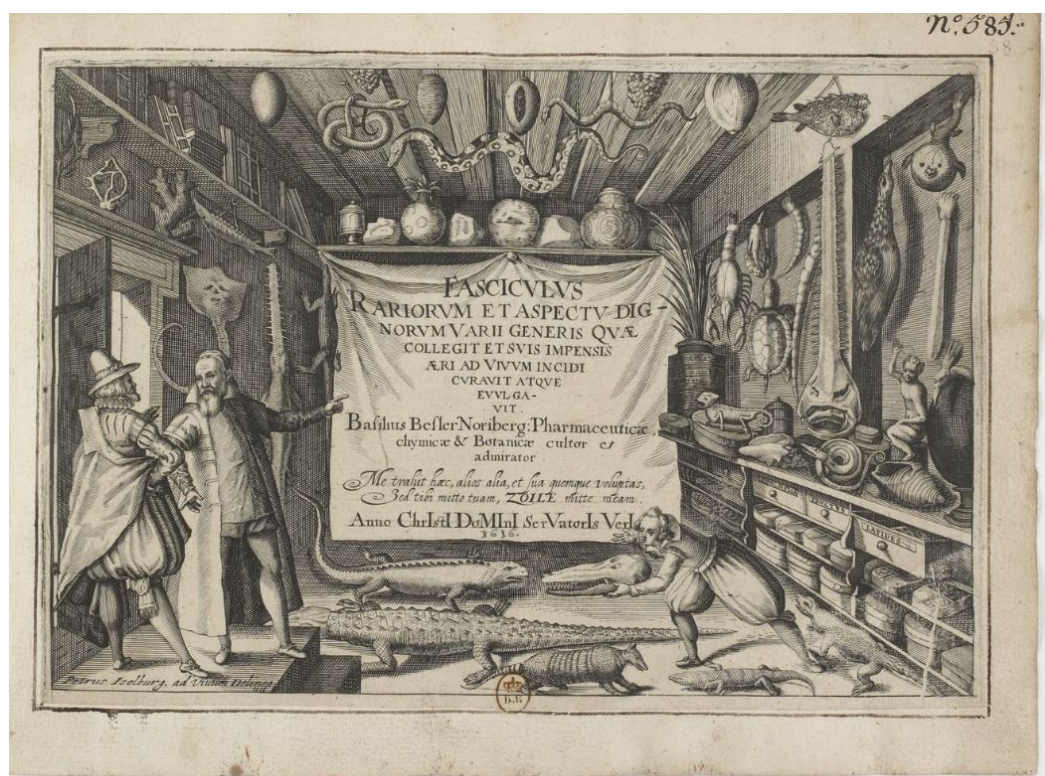 Nº. 585.
38
FASCICVLVS
RARIORVM ET ASPECTV DIG-
NORVM VARII GENERIS QVÆ
COLLEGIT ET SVIS IMPENSIS
ÆRI AD VIVUM INCIDI
CVRAVIT ATQVE
EVVLGA-
VIT.
Basilius Besler Noriberg: Pharmaceuticæ,
chymicæ & Botanicæ cultor et
admirator.
Me trahit hæc, alios alia, et sua quemque voluptas,
Sed tibi mitto tuam, ZOILE mitte meam.
Anno ChrIstI DoMInI SerVatorIs VerI.
1616.
LAPIDES
Petrus Iselburg. ad Vivum